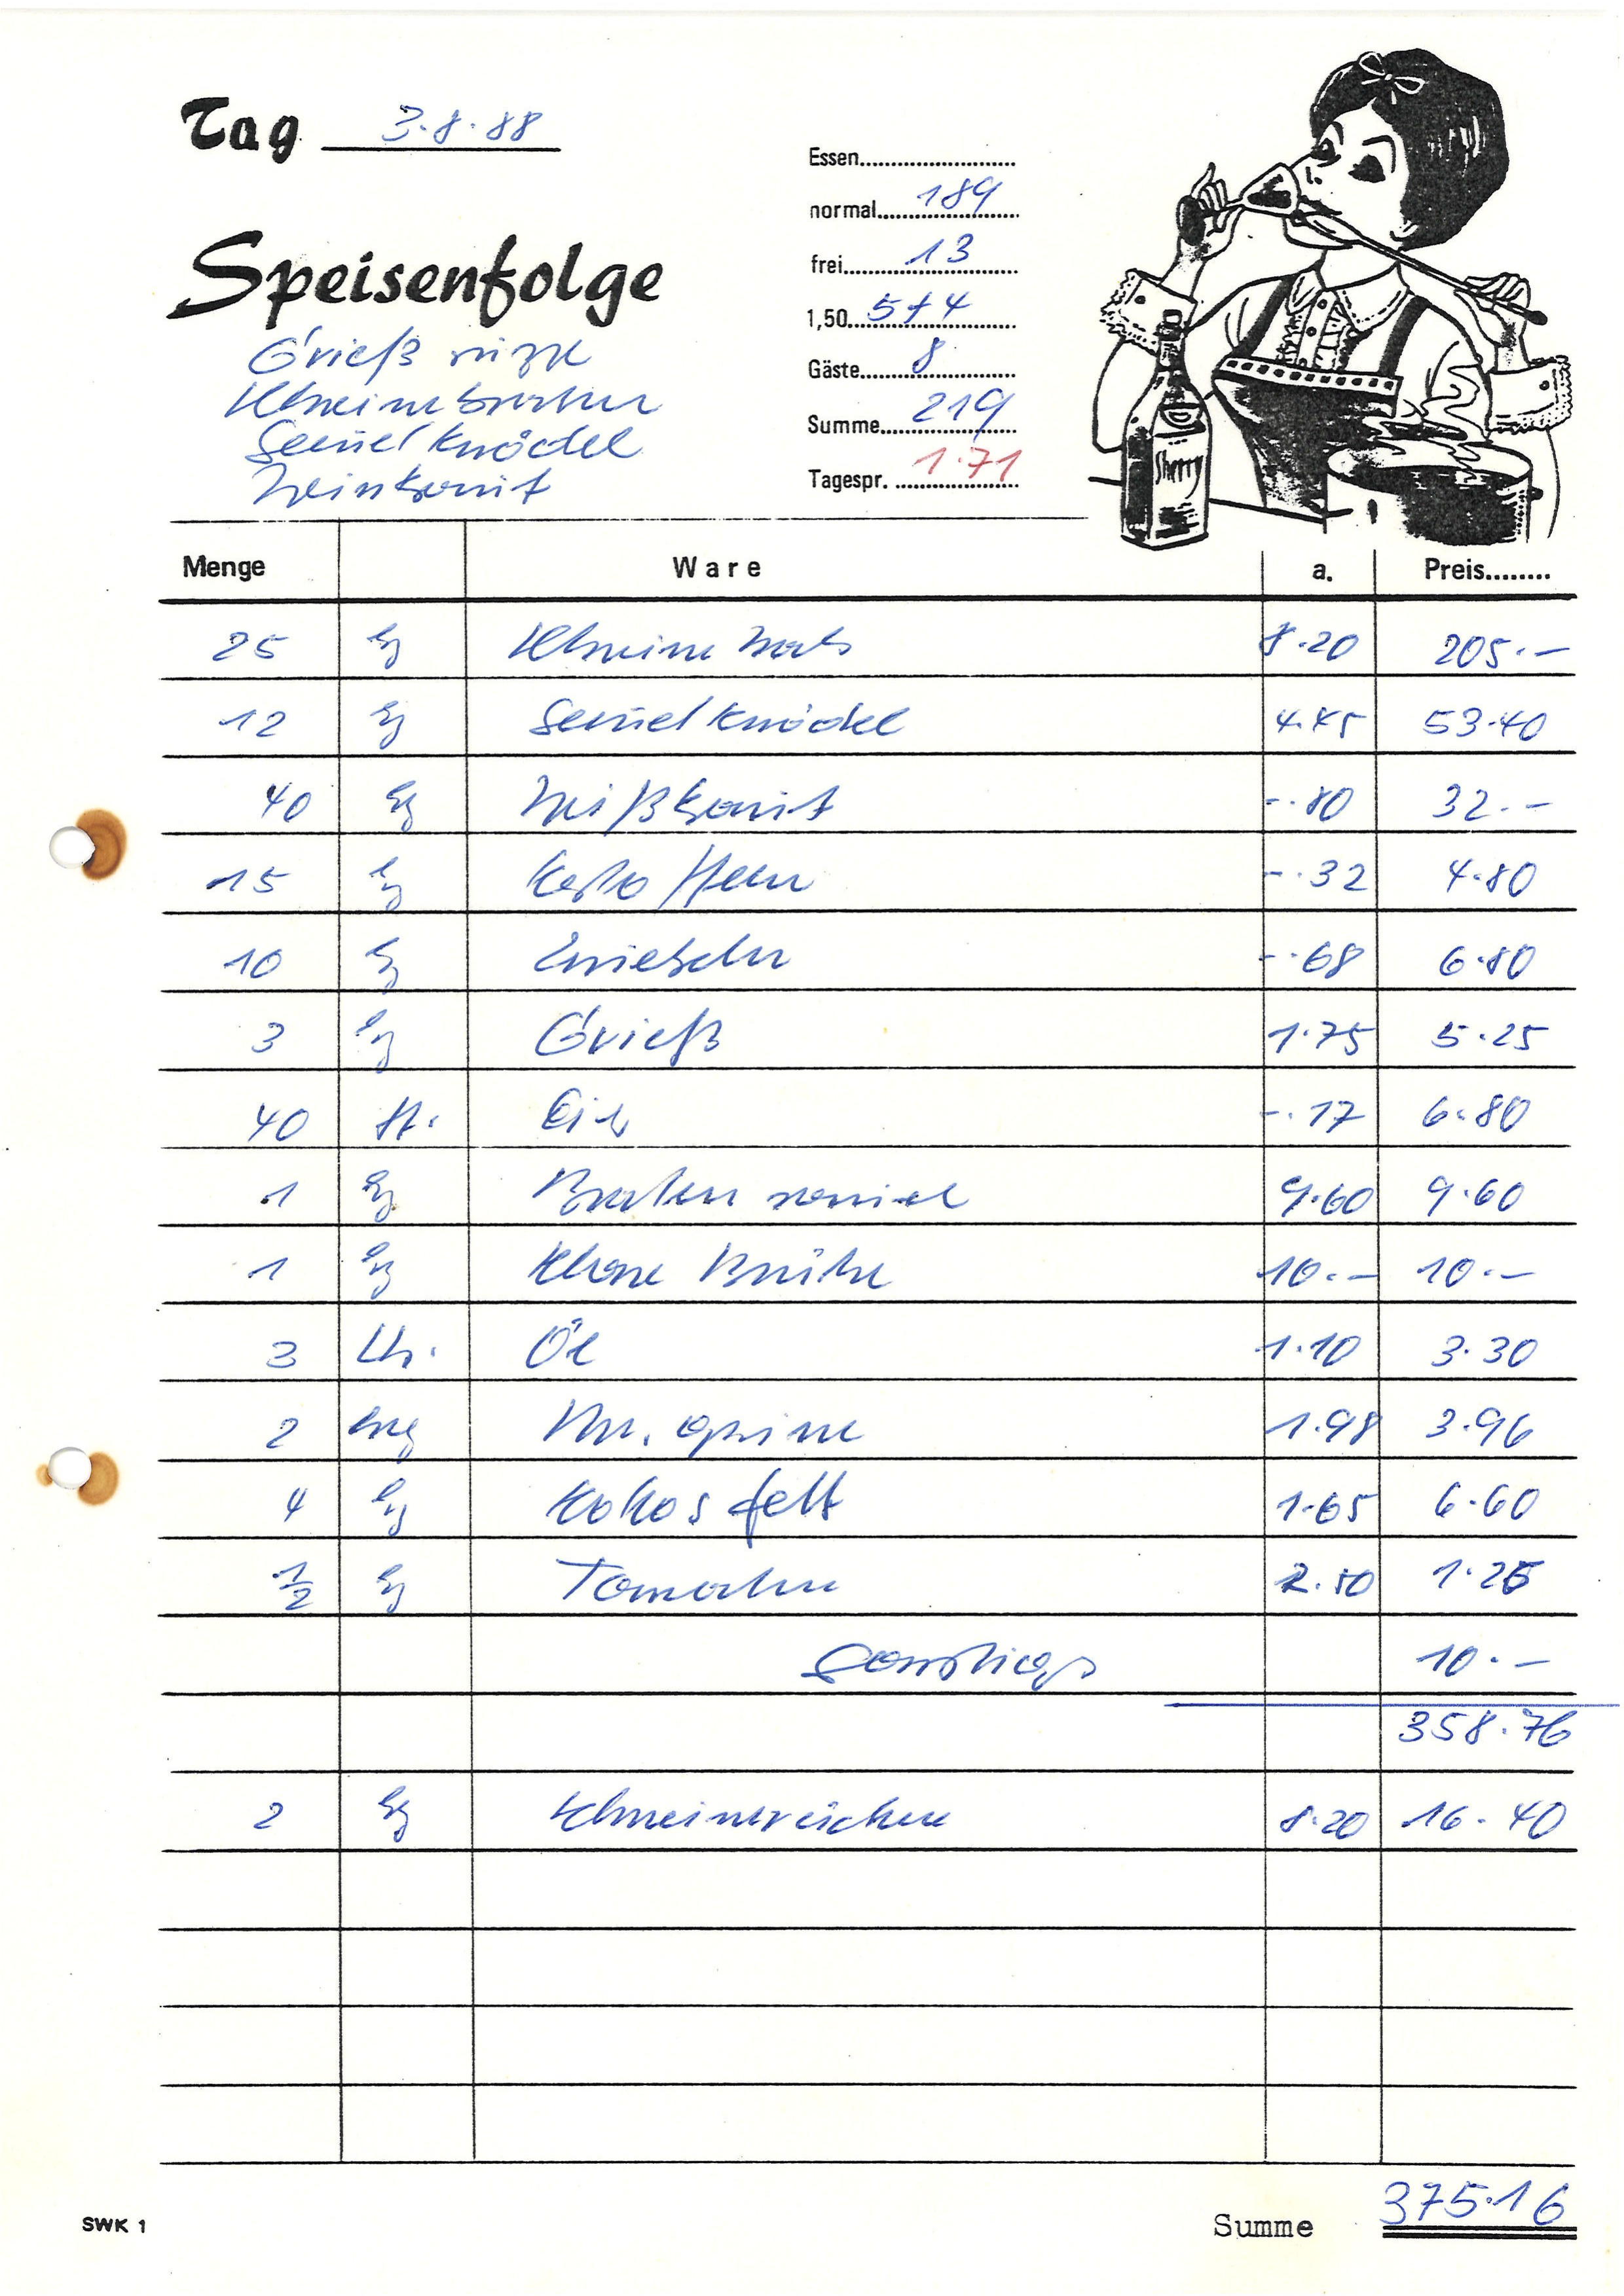 Tag 3.8.88
Speisenfolge
Grieß suppe
Schweinebraten
Semmel knödel
Weinkraut
Essen
normal 189
frei 13
1,50 5+4
Gäste 8
Summe 219
Tagespr. 1.71
Sherry
Menge Ware a. Preis
25 kg Schweine hals 8.20 205.-
12 kg Semmel knödel 4.45 53.40
40 kg Weißkraut -.80 32.-
15 kg Kartoffeln -.32 4.80
10 kg Zwiebeln -.68 6.80
3 kg Grieß 1.75 5.25
40 St. Eier -.17 6.80
1 kg Braten 9.60 9.60
1 kg Klare Brühe 10.- 10.-
3 Ltr. Öl 1.10 3.30
2 1.98 3.96
4 kg Kokosfett 1.65 6.60
1/2 kg Tomaten 2.50 1.25
Sonstiges 10.-
358.76
2 kg Schweinerücken 8.20 16.40
SWK 1
Summe 375.16